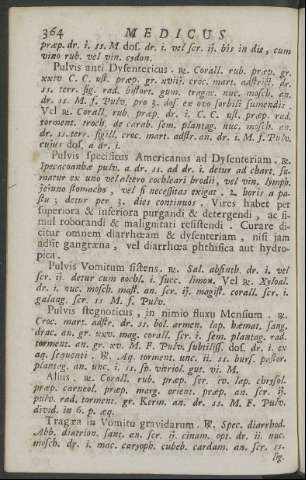 364 MEDICUS
præp. dr. i. ss. M dos. dr. i. vel scr. ij. bis in die, cum
vino rub. vel vin. cydon.
Pulvis anti Dysentericus. ℞. Corall. rub. præp. gr.
xxiv C. C. ust. præp. gr. xviij. croc. mart. adstrict. dr.
ss. terr. sig. rad. bistort. gum. tragac. nuc. mosch. an.
dr. ss. M. f. Pulv. pro 3. dos. ex ovo sorbili sumendis.
Vel ℞. Corall. rub. præp. dr. i. C. C. ust. præp. rad.
torment. troch. de carab. sem. plantag. nuc. mosch. an.
dr. ss. terr. sigill. croc. mart. adstr. an. dr. i. M. f. Pulv.
cujus dos. a dr. i.
Pulvis specificus Americanus ad Dysenteriam. ℞.
Ipecacoanhæ pulv. a dr. ss. ad dr. i. detur ad chart. su-
matur ex uno vel altero cochleari brodii, vel vin. lymph.
jejuno stomacho, vel si necessitas exigat. 2. horis a pa-
stu; detur per 3. dies continuos. Vires habet per
superiora & inferiora purgandi & detergendi, ac si-
mul roborandi & malignitati resistendi. Curare di-
citur omnem diarrhœam & dysenteriam, nisi jam
adsit gangræna, vel diarrhœa phthisica aut hydro-
pica.
Pulvis Vomitum sistens. ℞. Sal. absinth. dr. i. vel
scr. ij. detur cum cochl. i. succ. limon. Vel ℞. Xyloal.
dr. i. nuc. mosch. mast. an. scr. ij. magist. corall. scr. i.
galang. scr. ss M. f. Pulv.
Pulvis stegnoticus, in nimio fluxu Mensium. ℞.
Croc. mart. adstr. dr. ss. bol. armen. lap. hæmat. sang.
drac. an. gr. xxv. mag. corall. scr. i. sem. plantag. rad.
torment. an. gr. xv. M. F. Pulv. subtiliss. dos. dr. i. ex
aq. sequenti. ℞. Aq. torment. unc. ii. ss. burs. pastor.
plantag. an. unc. i. ss. sp. vitriol. gut. vi. M.
Alius. ℞. Corall. rub. præp. scr. iv. lap. chrysol.
præp. corneol. præp. marg. orient. præp. an. scr. ij.
pulv. rad. torment. gr. Kerm. an. dr. ss. M. F. Pulv.
divid. in 6. p. æq.
Tragæa in Vomitu gravidarum. ℞. Spec. diarrhod.
Abb. diatrion. sant. an. scr. ij. cinam. opt. dr. ij. nuc.
mosch. dr. i. mac. caryoph. cubeb. cardam. an. scr. ss.
lig.